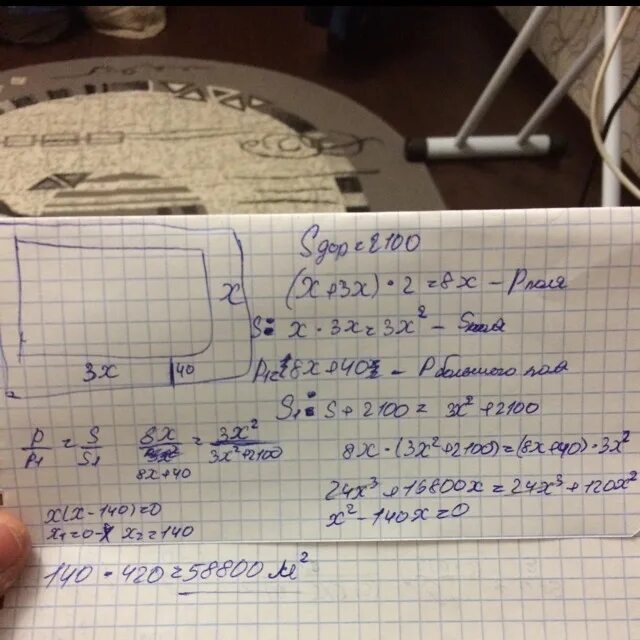 Sдор = 2100
(x+3x)·2=8x – Pполя
x
S= x·3x=3x² – Sполя
3x
40
P₁=8x+40 – Pбольшого поля
S₁= S+2100= 3x²+2100
P/P₁ = S/S₁
8x/(8x+40) = 3x²/(3x²+2100)
8x·(3x²+2100)=(8x+40)·3x²
24x³+16800x=24x³+120x²
x²-140x=0
x(x-140)=0
x₁=0 x₂=140
140·420=58800 м²